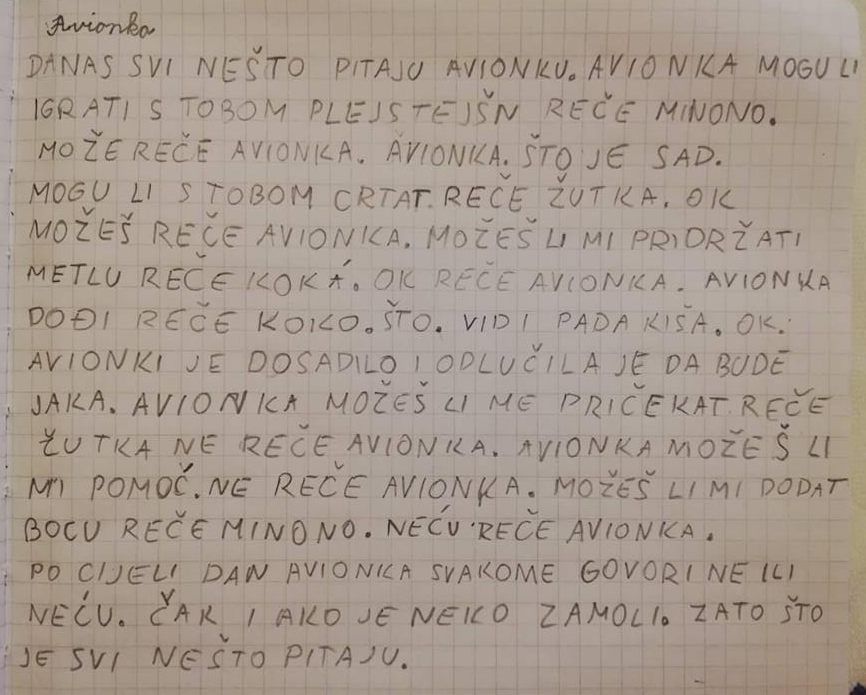 Avionka
DANAS SVI NEŠTO PITAJU AVIONKU. AVIONKA MOGU LI
IGRATI S TOBOM PLEJSTEJŠN REČE MINONO.
MOŽE REČE AVIONKA. AVIONKA. ŠTO JE SAD.
MOGU LI S TOBOM CRTAT. REČE ŽUTKA. OK
MOŽEŠ REČE AVIONKA. MOŽEŠ LI MI PRIDRŽATI
METLU REČE KOKA. OK REČE AVIONKA. AVIONKA
DOĐI REČE KOKO. ŠTO. VIDI PADA KIŠA. OK.
AVIONKI JE DOSADILO I ODLUČILA JE DA BUDE
JAKA. AVIONKA MOŽEŠ LI ME PRIČEKAT. REČE
ŽUTKA NE REČE AVIONKA. AVIONKA MOŽEŠ LI
MI POMOĆ. NE REČE AVIONKA. MOŽEŠ LI MI DODAT
BOCU REČE MINONO. NEĆU REČE AVIONKA.
PO CIJELI DAN AVIONKA SVAKOME GOVORI NE ILI
NEĆU. ČAK I AKO JE NEKO ZAMOLI. ZATO ŠTO
JE SVI NEŠTO PITAJU.